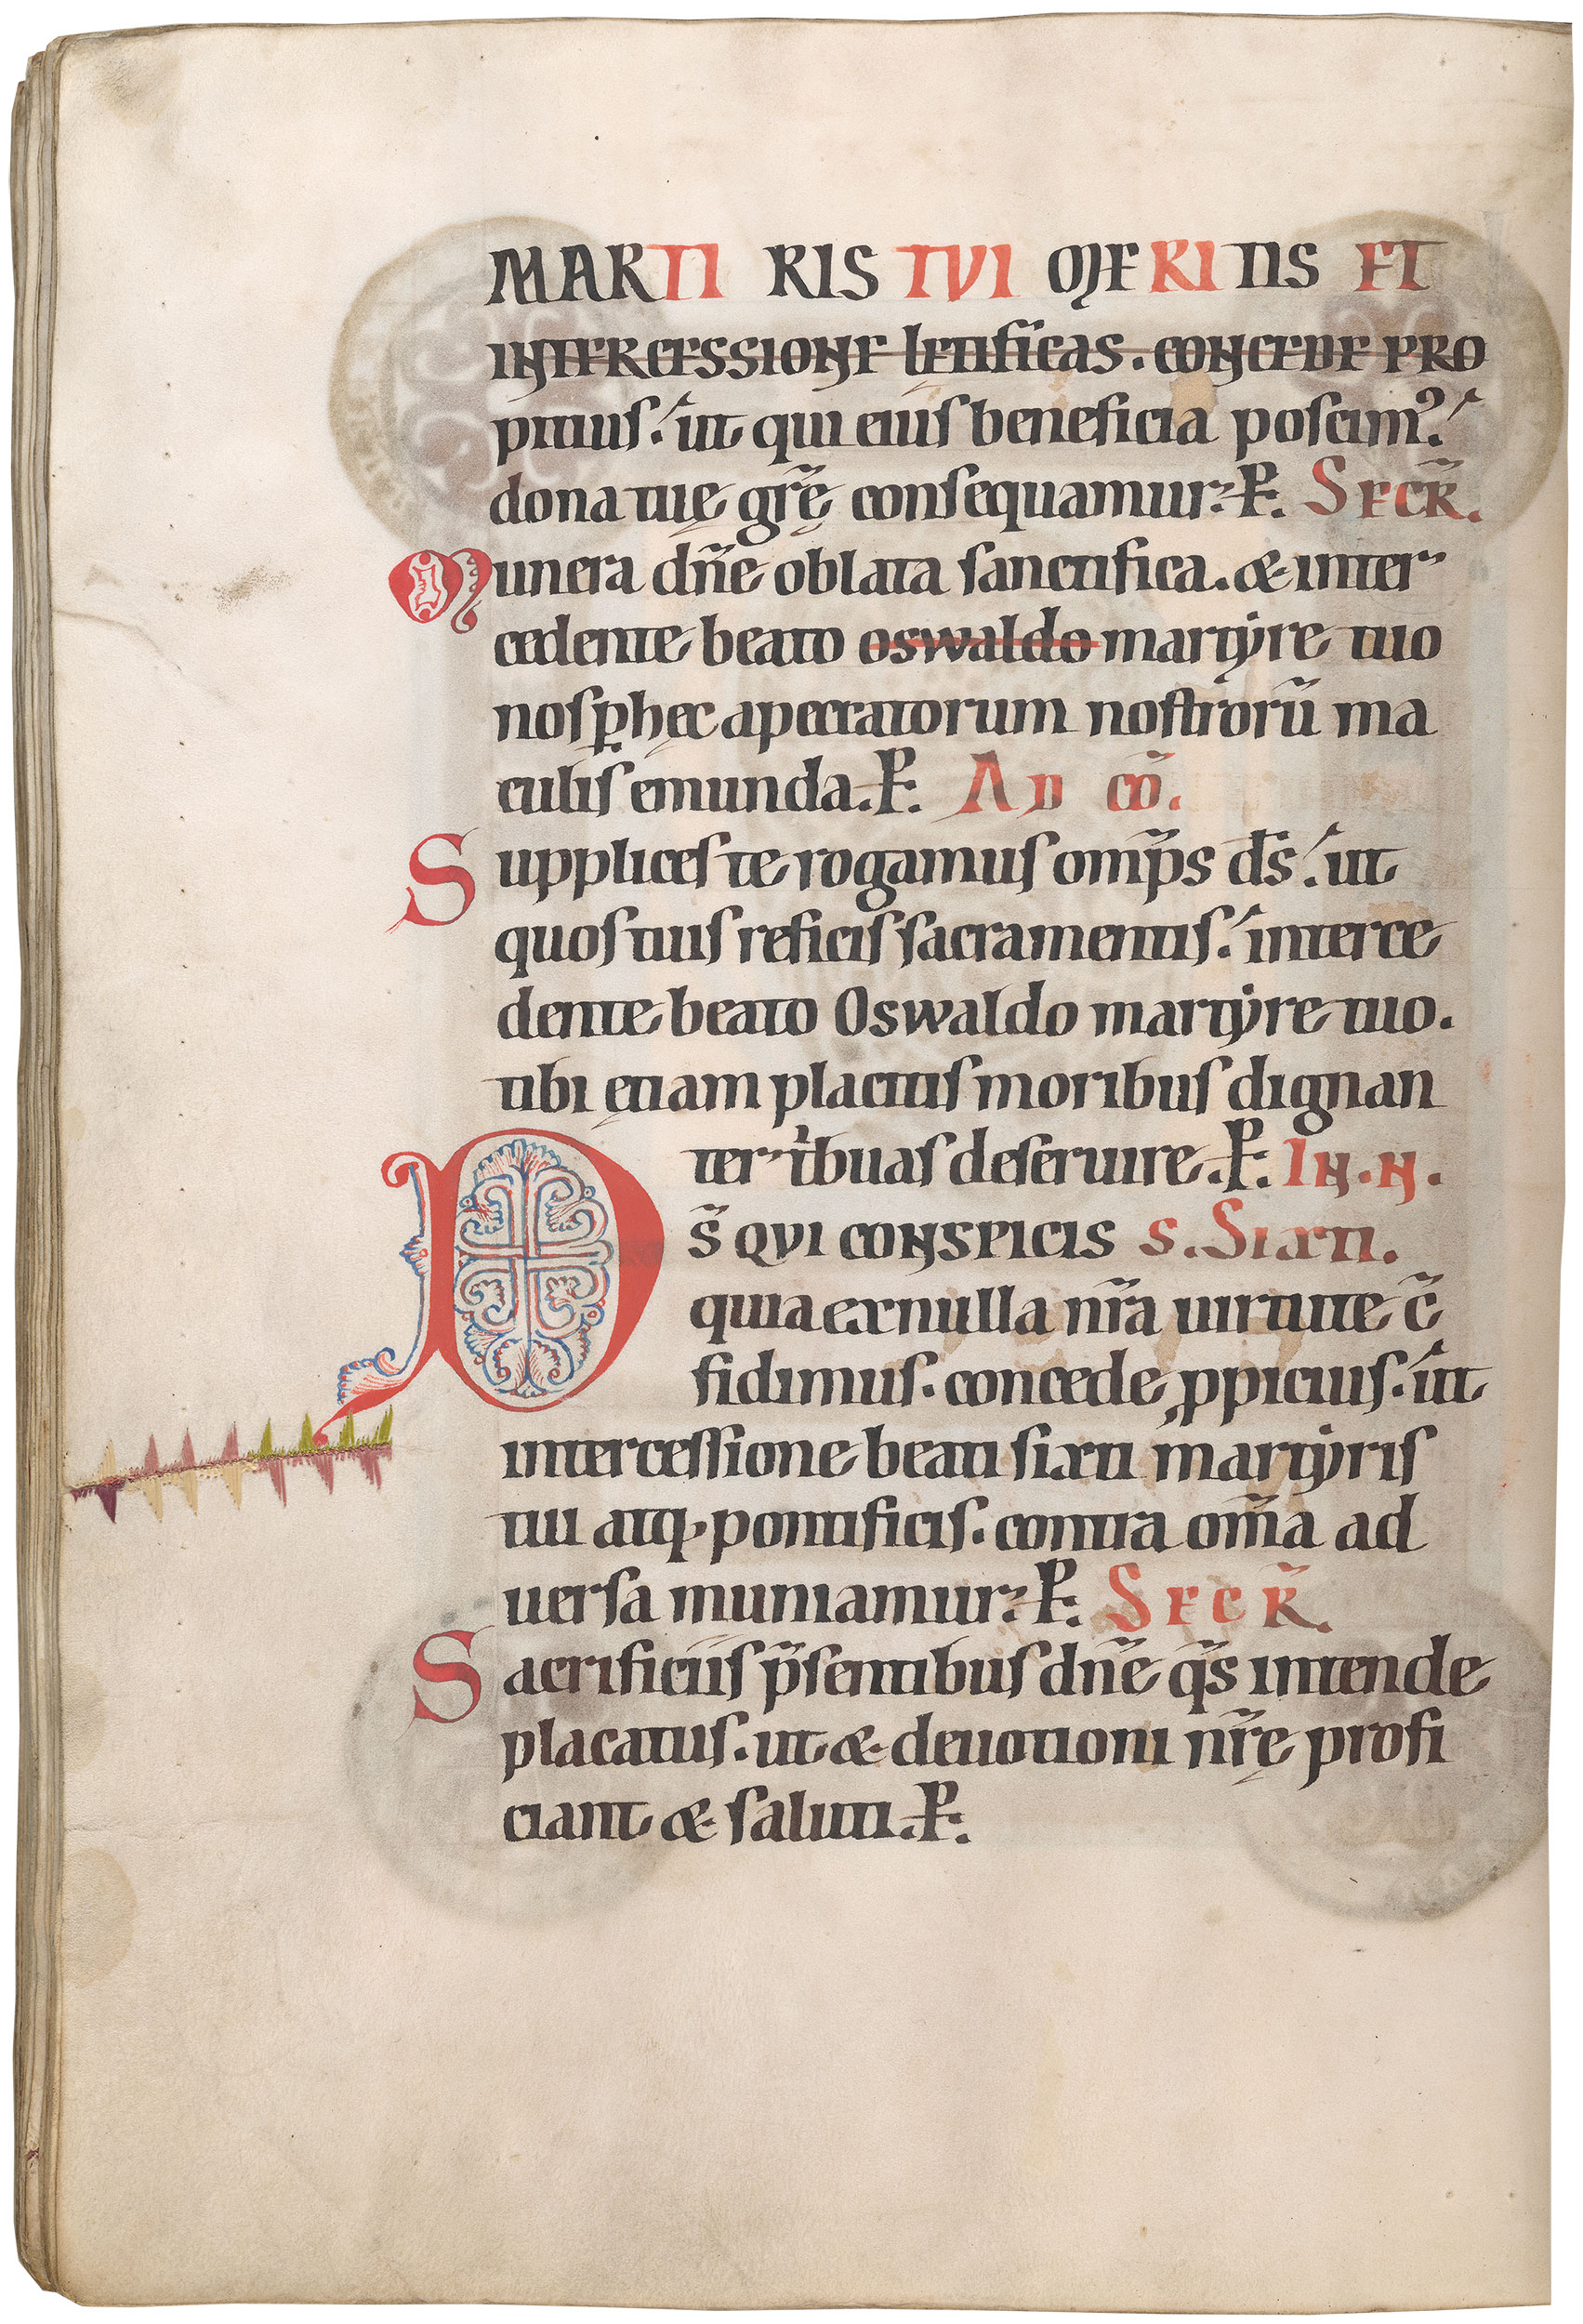 MARTI RIS TVI MERITIS ET
INTERCESSIONE LETIFICAS. CONCEDE PRO
pitius. ut qui eius beneficia poscimꝰ.
dona tuę grę̃ consequamur. P. SECR̃.
Munera dñe oblata sanctifica. & inter
cedente beato oswaldo martẏre tuo
nos ꝑ hęc a peccatorum nostrorũ ma
culis emunda. P. AD CO̅.
Supplices te rogamus omp̃s ds̃. ut
quos tuis reficis sacramentis. interce
dente beato Oswaldo martẏre tuo.
tibi ętiam placitis moribus dignan
ter tͥbuas deseruire. P. IN. N.
DS̃ QVI CONSPICIS S. Sixti.
quia ex nulla nr̃a uirtute c̃
fidimus. concede ꝓpicius. ut
intercessione beati sixti martẏris
tui atq. pontificis. contra om̃a ad
uersa muniamur. P. SECR̃.
Sacrificiis p̃sentibus dñe q̃s intende
placatus. ut & deuotioni nr̃ę profi
ciant & saluti. P.